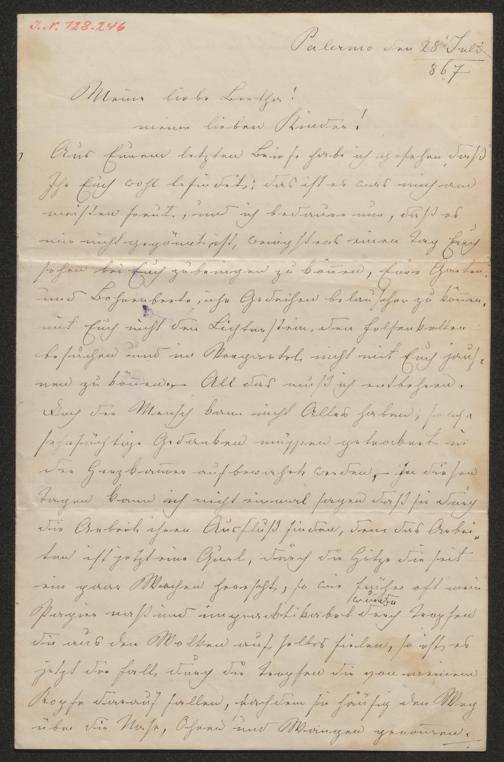 I.N. 128.246
Palermo den 28t Juli
867
Meine liebe Bertha!
meine lieben Kinder!
Aus Eurem letzten Briefe habe ich gesehen, daß
Ihr Euch wohl befindet; das ist es was mich am
meisten freut, und ich bedaure nur, daß es
mir nicht gegönnt ist, wenigstens einen Tag Euch
sehen bei Euch zubringen zu können, Eure Garten
und Bohnenbeete, ihr Gedeihen belauschen zu können,
mit Euch nicht den Lichtenstein, den Felsenkeller
besuchen und im nicht mit Euch jaus=
nen zu können. All das muß ich entbehren.
Doch der Mensch kann nicht Alles haben, solche
sehnsüchtige Gedanken müssen getrocknet in
der Herzkammer aufbewahrt werden, – in diesen
Tagen kann ich nicht einmal sagen daß sie durch
die Arbeit ihren Ausfluß finden, denn das Arbei=
ten ist jetzt eine Qual, durch die Hitze die seit
ein paar Wochen herrscht, so wie früher oft mein
Papier naß und unpracktikabel wurde durch Tropfen
die aus den Wolken auf selbes fielen, so ist es
jetzt der Fall, durch die Tropfen die von meinem
Kopfe darauf fallen, nachdem sie häufig den Weg
über die Nase, Ohren und Wangen genommen.